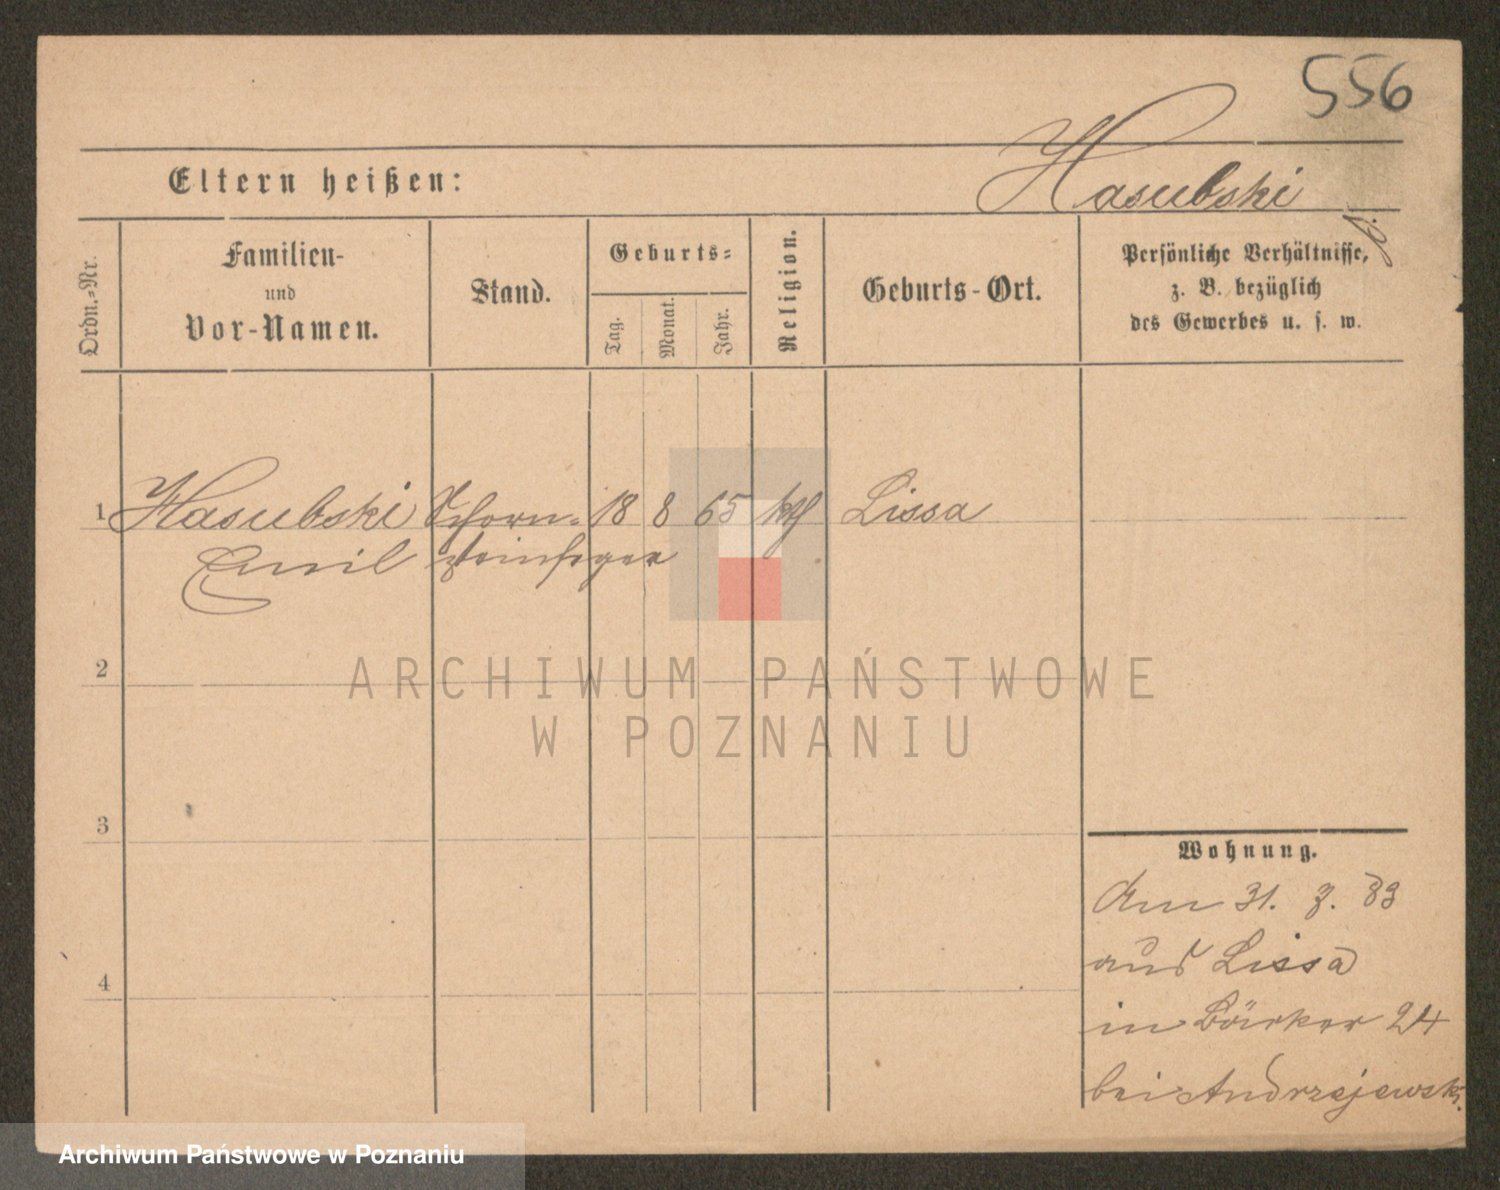 556
Hasubski
Eltern heißen:
Ordn.=Nr.
Familien-
und
Vor-Namen.
Stand.
Geburts=
Tag.
Monat.
Jahr.
Religion.
Geburts-Ort.
Persönliche Verhältnisse,
z. B. bezüglich
des Gewerbes u. s. w.
1 Hasubski Schorn- 18 8 65 kth Lissa
Emil steinfeger
2
3
4
Wohnung.
Am 31. 3. 83
aus Lissa
in Bäcker 24
bei Andrzejewski.
ARCHIWUM PAŃSTWOWE
W POZNANIU
Archiwum Państwowe w Poznaniu